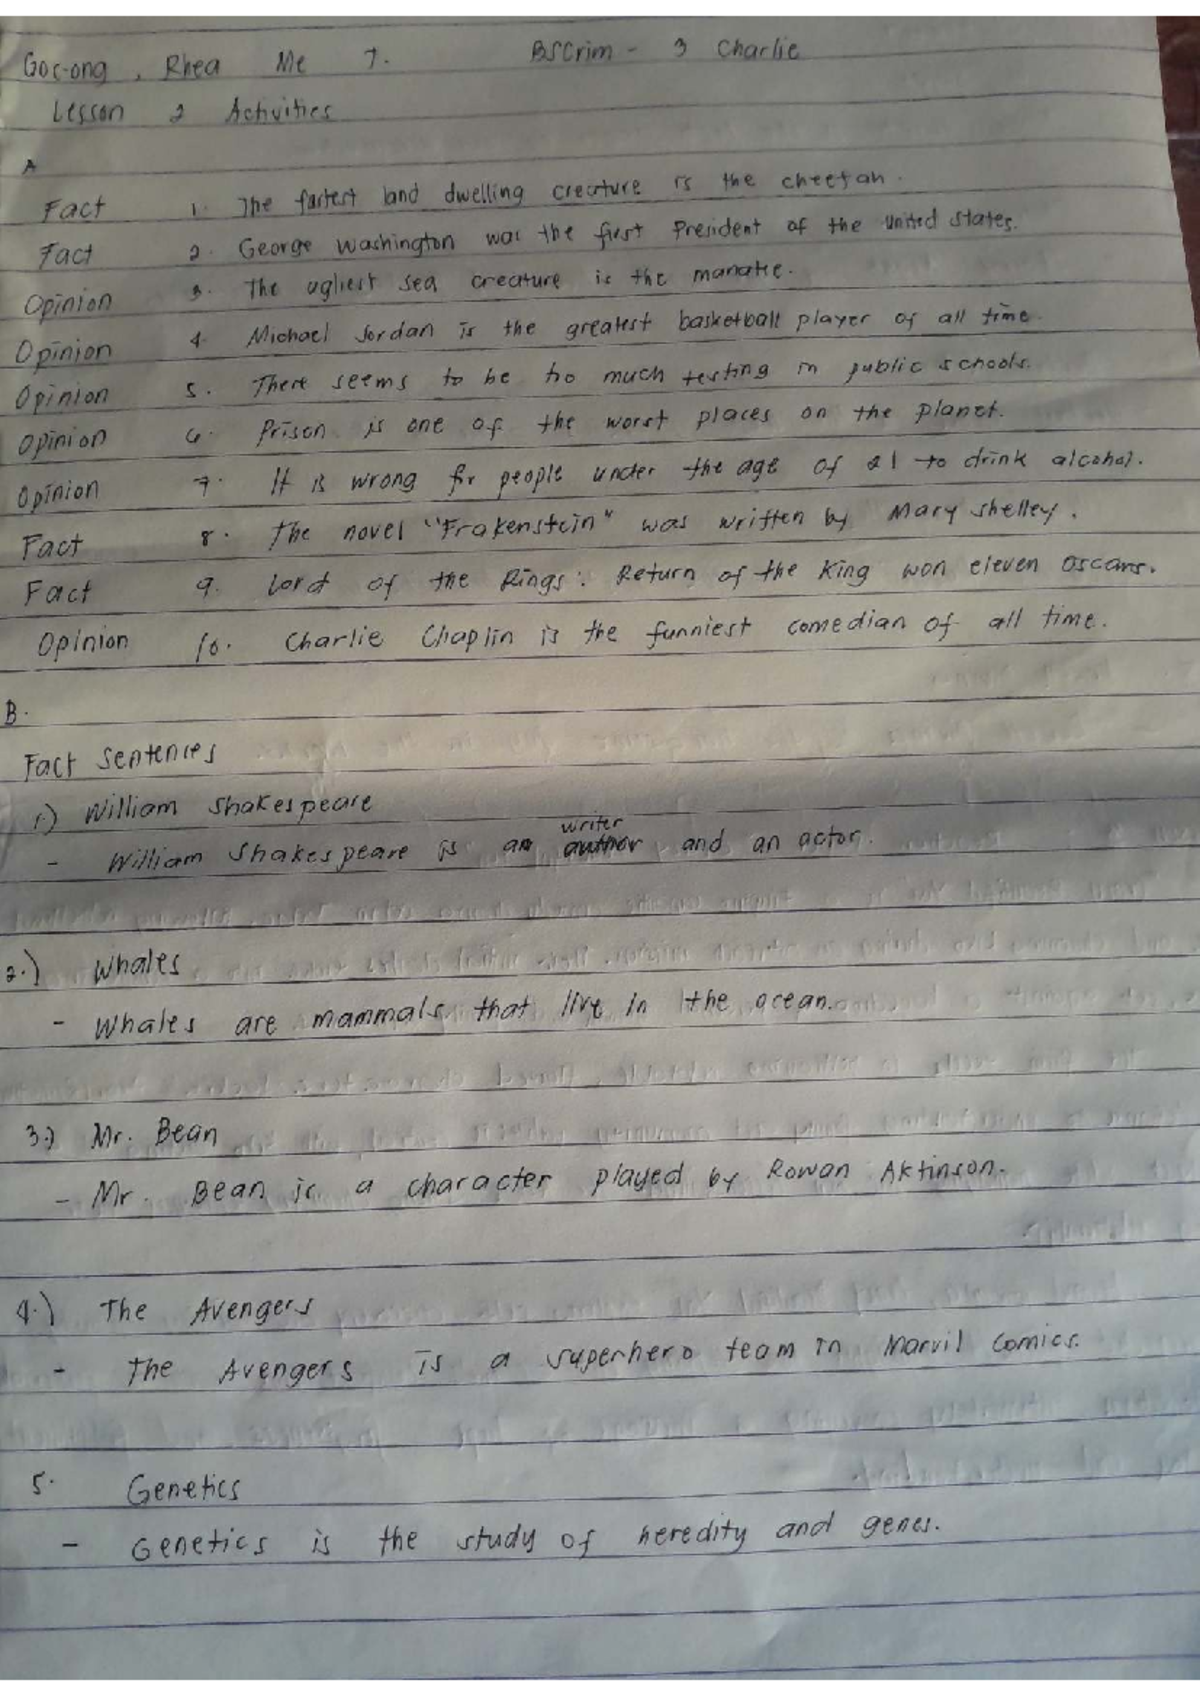 Goc-ong, Rhea Me T. BSCrim - 3 Charlie
Lesson 2 Activities
A
Fact 1. The fastest land dwelling creature is the cheetah.
Fact 2. George Washington was the first President of the United States.
Opinion 3. The ugliest sea creature is the manatee.
Opinion 4. Michael Jordan is the greatest basketball player of all time.
Opinion 5. There seems to be too much testing in public schools.
Opinion 6. Prison is one of the worst places on the planet.
Opinion 7. It is wrong for people under the age of 21 to drink alcohol.
Fact 8. The novel "Frakenstein" was written by Mary Shelley.
Fact 9. Lord of the Rings: Return of the King won eleven Oscars.
Opinion 10. Charlie Chaplin is the funniest comedian of all time.
B.
Fact Sentences
1.) William Shakespeare
writer
- William Shakespeare is an author and an actor.
2.) Whales
- Whales are mammals that live in the ocean.
3.) Mr. Bean
- Mr. Bean is a character played by Rowan Aktinson.
4.) The Avengers
- The Avengers is a superhero team in Marvil Comics.
5. Genetics
- Genetics is the study of heredity and genes.